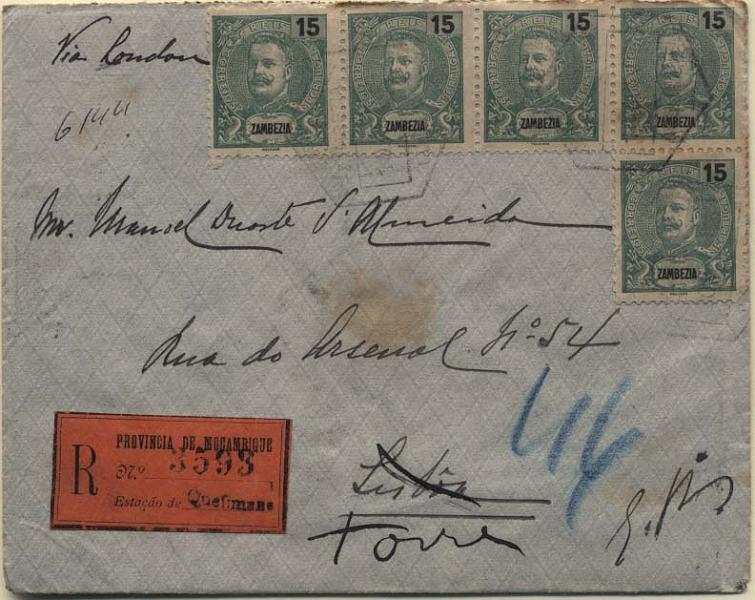 Via London
6144
15 15 15 15
ZAMBEZIA ZAMBEZIA ZAMBEZIA ZAMBEZIA
15
ZAMBEZIA
Mr. Manuel Duarte d'Almeida
Rua do Arsenal Nº 54
PROVINCIA DE MOÇAMBIQUE
R
N.º 3593
Estação de Quelimane
Lisbôa
Torre